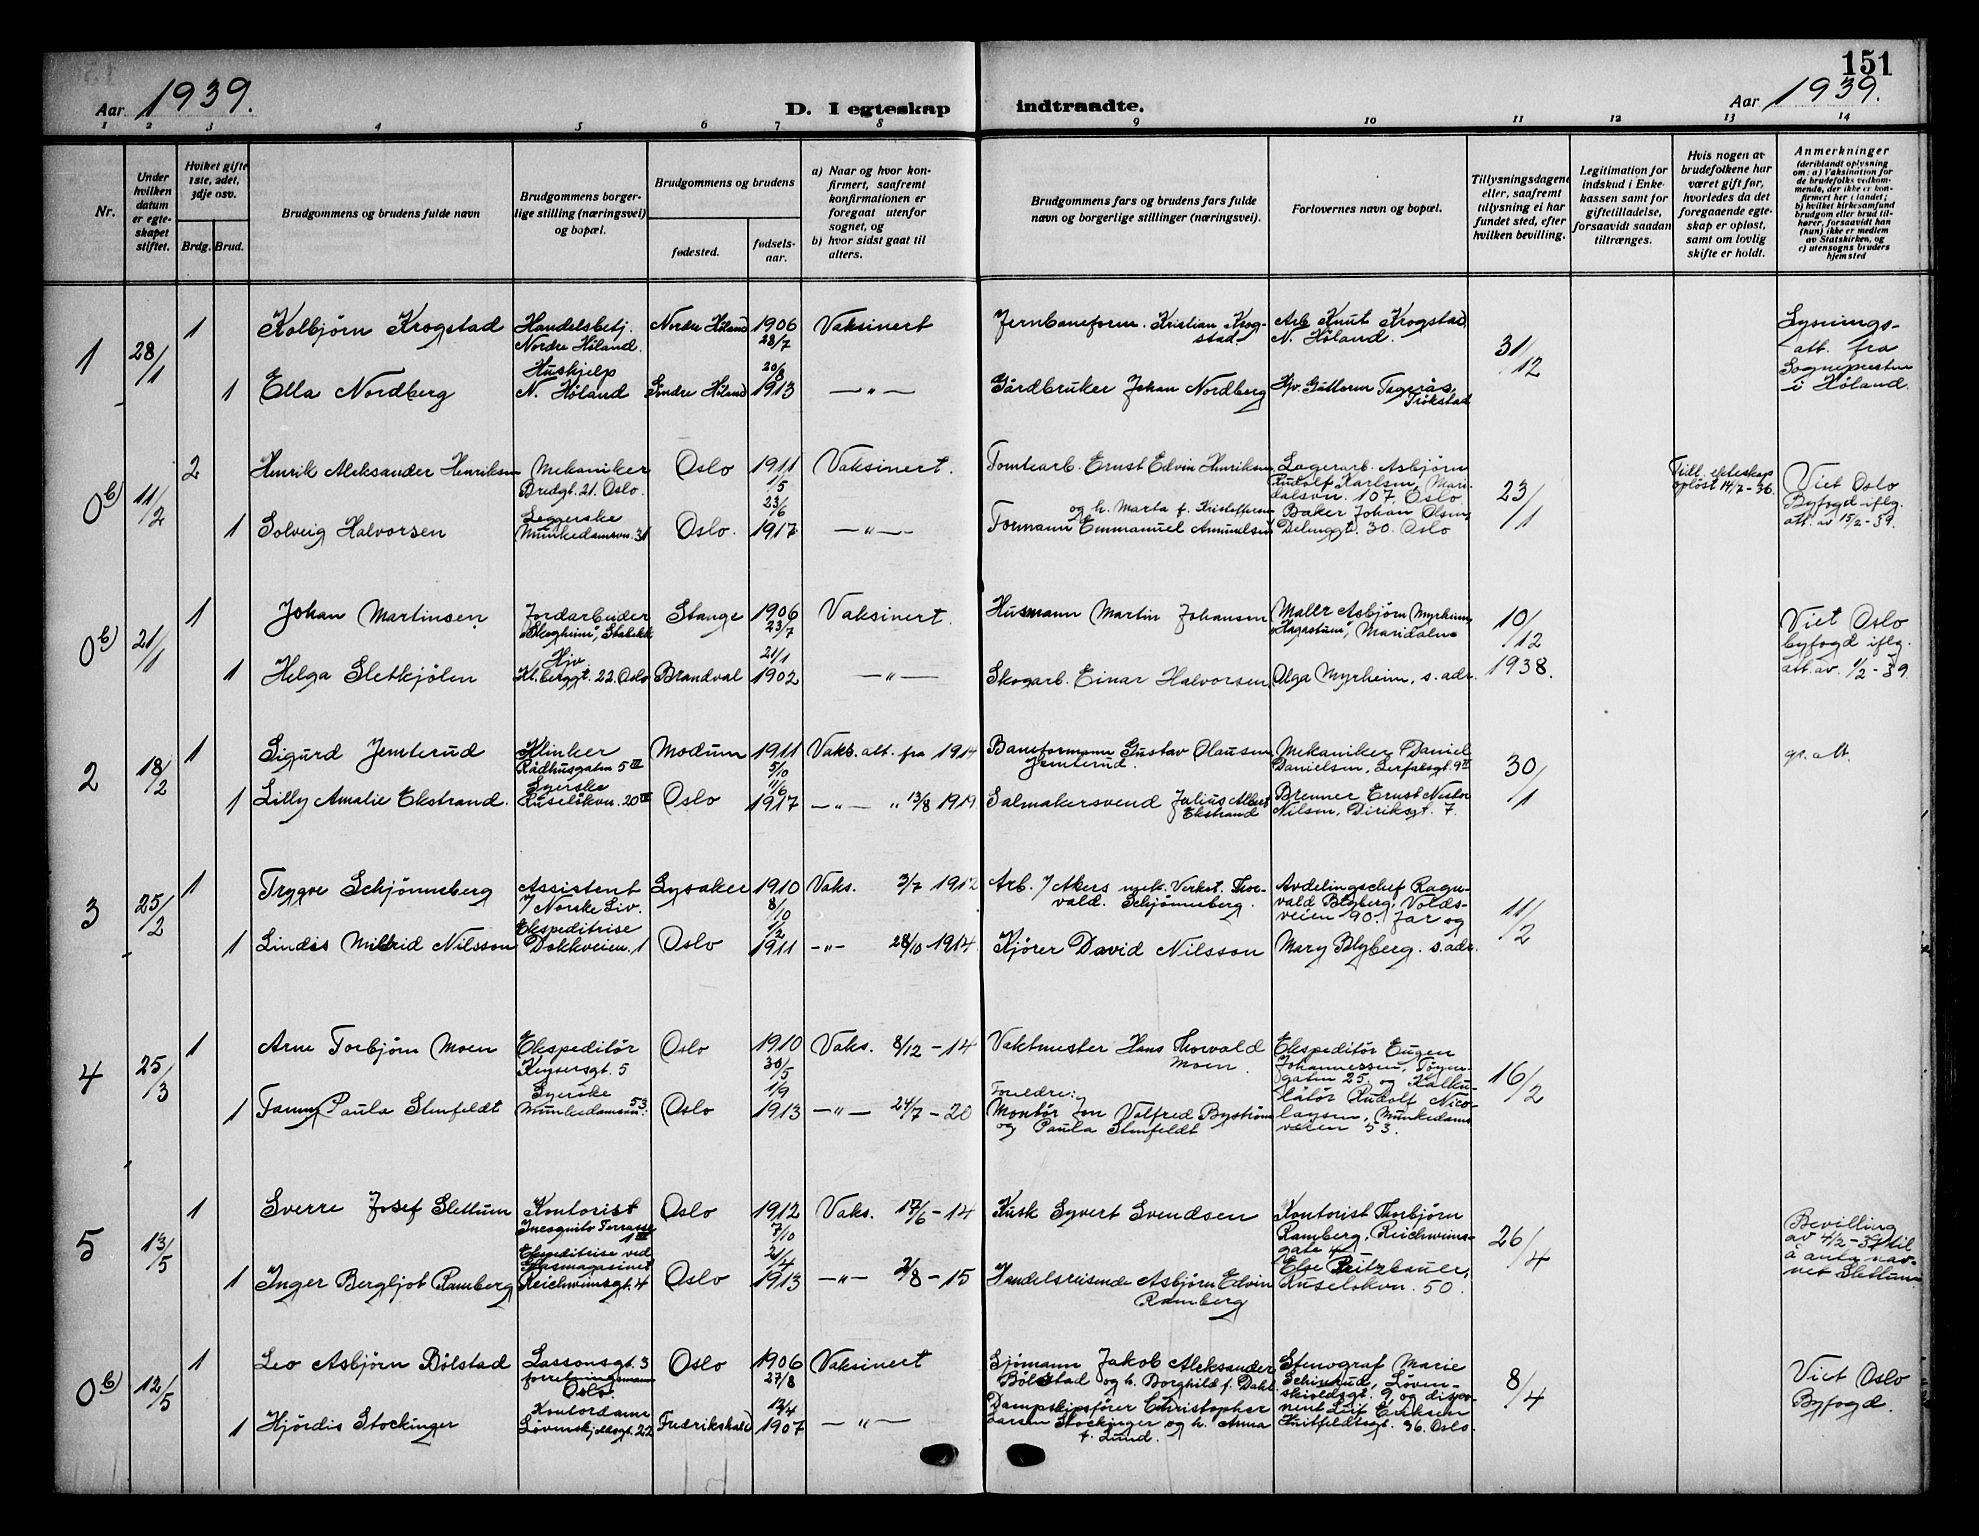 151
Aar 1939.
D. I egteskap indtraadte.
Aar 1939.
1 2 3 4 5 6 7 8 9 10 11 12 13 14
Nr.
Under hvilken datum er egteskapet stiftet.
Hvilket gifte 1ste, 2det, 3dje osv.
Brdg. Brud.
Brudgommens og brudens fulde navn
Brudgommens borgerlige stilling (næringsvei) og bopæl.
Brudgommens og brudens
fødested.
fødselsaar.
a) Naar og hvor konfirmert, saafremt konfirmationen er foregaat utenfor sognet, og
b) hvor sidst gaat til alters.
Brudgommens fars og brudens fars fulde navn og borgerlige stillinger (næringsvei).
Forlovernes navn og bopæl.
Tillysningsdagene eller, saafremt tillysning ei har fundet sted, efter hvilken bevilling.
Legitimation for indskud i Enkekassen samt for giftetilladelse, forsaavidt saadan tiltrænges.
Hvis nogen av brudefolkene har været gift før, hvorledes da det foregaaende egteskap er opløst, samt om lovlig skifte er holdt.
Anmerkninger
(deriblandt oplysning om: a) Vaksination for de brudefolks vedkommende, der ikke er konfirmert her i landet; b) hvilket kirkesamfund brudgom eller brud tilhører, forsaavidt han (hun) ikke er medlem av Statskirken, og c) utensogns bruders hjemsted
1 28/1 1 Kolbjørn Krogstad
Handelsbetj. Nordre Høland.
Nordre Høland 1906 28/7 Vaksinert
Jernbaneform. Kristian Krogstad
Arb. Knut Krogstad, N. Høland.
31/12
Lysningsatt. fra Sognepresten i Høland.
1 Ella Nordberg
Hushjelp N. Høland
Søndre Høland 20/8 1913 —"—
Gårdbruker Johan Nordberg
Guttorm Trøkstad
0b) 11/2 2 Henrik Aleksander Henriksen
Mekaniker Bredgt. 21. Oslo.
Oslo 1911 1/5 Vaksinert.
Tomtearb. Ernst Edvin Henriksen og h. Marta f. Kristoffersen
Lagerarb. Asbjørn Rudolf Karlsen, Maridalsvn. 107, Oslo
23/1
Till. ekteskap opløst 14/2-36.
Viet Oslo Byfogd iflg. att. av 15/2-39.
1 Solveig Halvorsen
Munkedamsvn. 31
Oslo. 23/6 1917 —"—
Formann Emmanuel Amundsen
Baker Johan Olsen, 30. Oslo
0b) 21/1 1 Johan Martinsen
Jordarbeider "Skogheim", Stabekk
Stange 1906 23/7 Vaksinert.
Husmann Martin Johansen
Maler Asbjørn Myrheim, Maridalen
10/12 1938.
Viet Oslo byfogd iflg. att. av. 1/2-39.
1 Helga Sletkjølen
Hjv. 22. Oslo
Brandval 21/1 1902 —"—
Skogarb. Einar Halvorsen
Olga Myrheim, s. adr.
2 18/2 1 Sigurd Jemterud
Rådhusgaten 5 III
Modum 1911 5/10 Vaks. att. fra 1914
Baneformann Gustav Olausen Jemterud.
Mekaniker Daniel Danielsen, 9 II
30/1
gr. att.
1 Lilly Amalie Ekstrand.
Syerske Ruseløkvn. 20 III
Oslo 11/6 1917 —"— " 13/8 1919
Salmakersvend Julius Albert Ekstrand
Brenner Ernst Nestor Nilsen, Diriksgt. 7.
3 25/2 1 Trygve Schjønneberg
Assistent i/ Norske Liv.
Lysaker 1910 8/10 Vaks. 3/7 1912
Arb. i/ Akers mek. Verkst. Thorvald. Schjønneberg.
Avdelingschef Ragnvald Blyberg, Voldsveien 90. Jar og
11/2
1 Lindis Mildrid Nilsson
Ekspeditrise Dokkveien 1
Oslo 1/2 1911 —"— 28/10-1914
Kjører David Nilsson
Mary Blyberg. s. adr.
4 25/3 1 Arne Torbjørn Moen
Ekspeditør Keysersgt. 5
Oslo 1910 30/5 Vaks. 8/12-14
Vaktmester Hans Thorvald Moen.
Ekspeditør Eugen Johannessen, Tøyengaten 25. og
16/2
1 Fanny Paula Stenfeldt
Syerske Munkedamsvn. 53.
Oslo 1/9 1913 —"— 24/7-20
Foreldre: Montør Jon Valfred Byström og Paula Stenfeldt
Kalkulatør Rudolf Nicolaysen, Munkedamsveien 53.
5 13/5 1 Sverre Josef Slettum
Kontorist Incognito Terrasse 1 III
Oslo 1912 7/10 Vaks. 17/6-14
Kusk Syvert Svendsen
Kontorist Thorbjørn Ramberg, Reichweinsgate 4
26/4
Bevilling av 4/2-39 til å anta navnet Slettum
1 Inger Bergljot Ramberg
Ekspeditrise ved Glasmagasinet Reichweinsgt. 4
Oslo 21/4 1913 —"— 2/8-15
Handelsreisende Asbjørn Edvin Ramberg
Else Pritzbauer, Ruseløkvn. 50.
0b) 12/5 1 Leo Asbjørn Bølstad
Lassonsgt. 3 forretningsmann Oslo.
Oslo 1906 27/8 Vaksinert
Sjømann Jakob Aleksander Bølstad og h. Borghild f. Dahl
Stenograf Marie Løvenskioldsgt. 9 og disponent Leif Eriksen Huitfeldtsgt. 36. Oslo.
8/4
Viet Oslo Byfogd.
1 Hjørdis Stockinger
Kontordame Løvenskjoldsgt. 22
Fredrikshald 13/4 1907 —"—
Dampskipsfører Christopher Larsen Stockinger og h. Anna f. Lund.